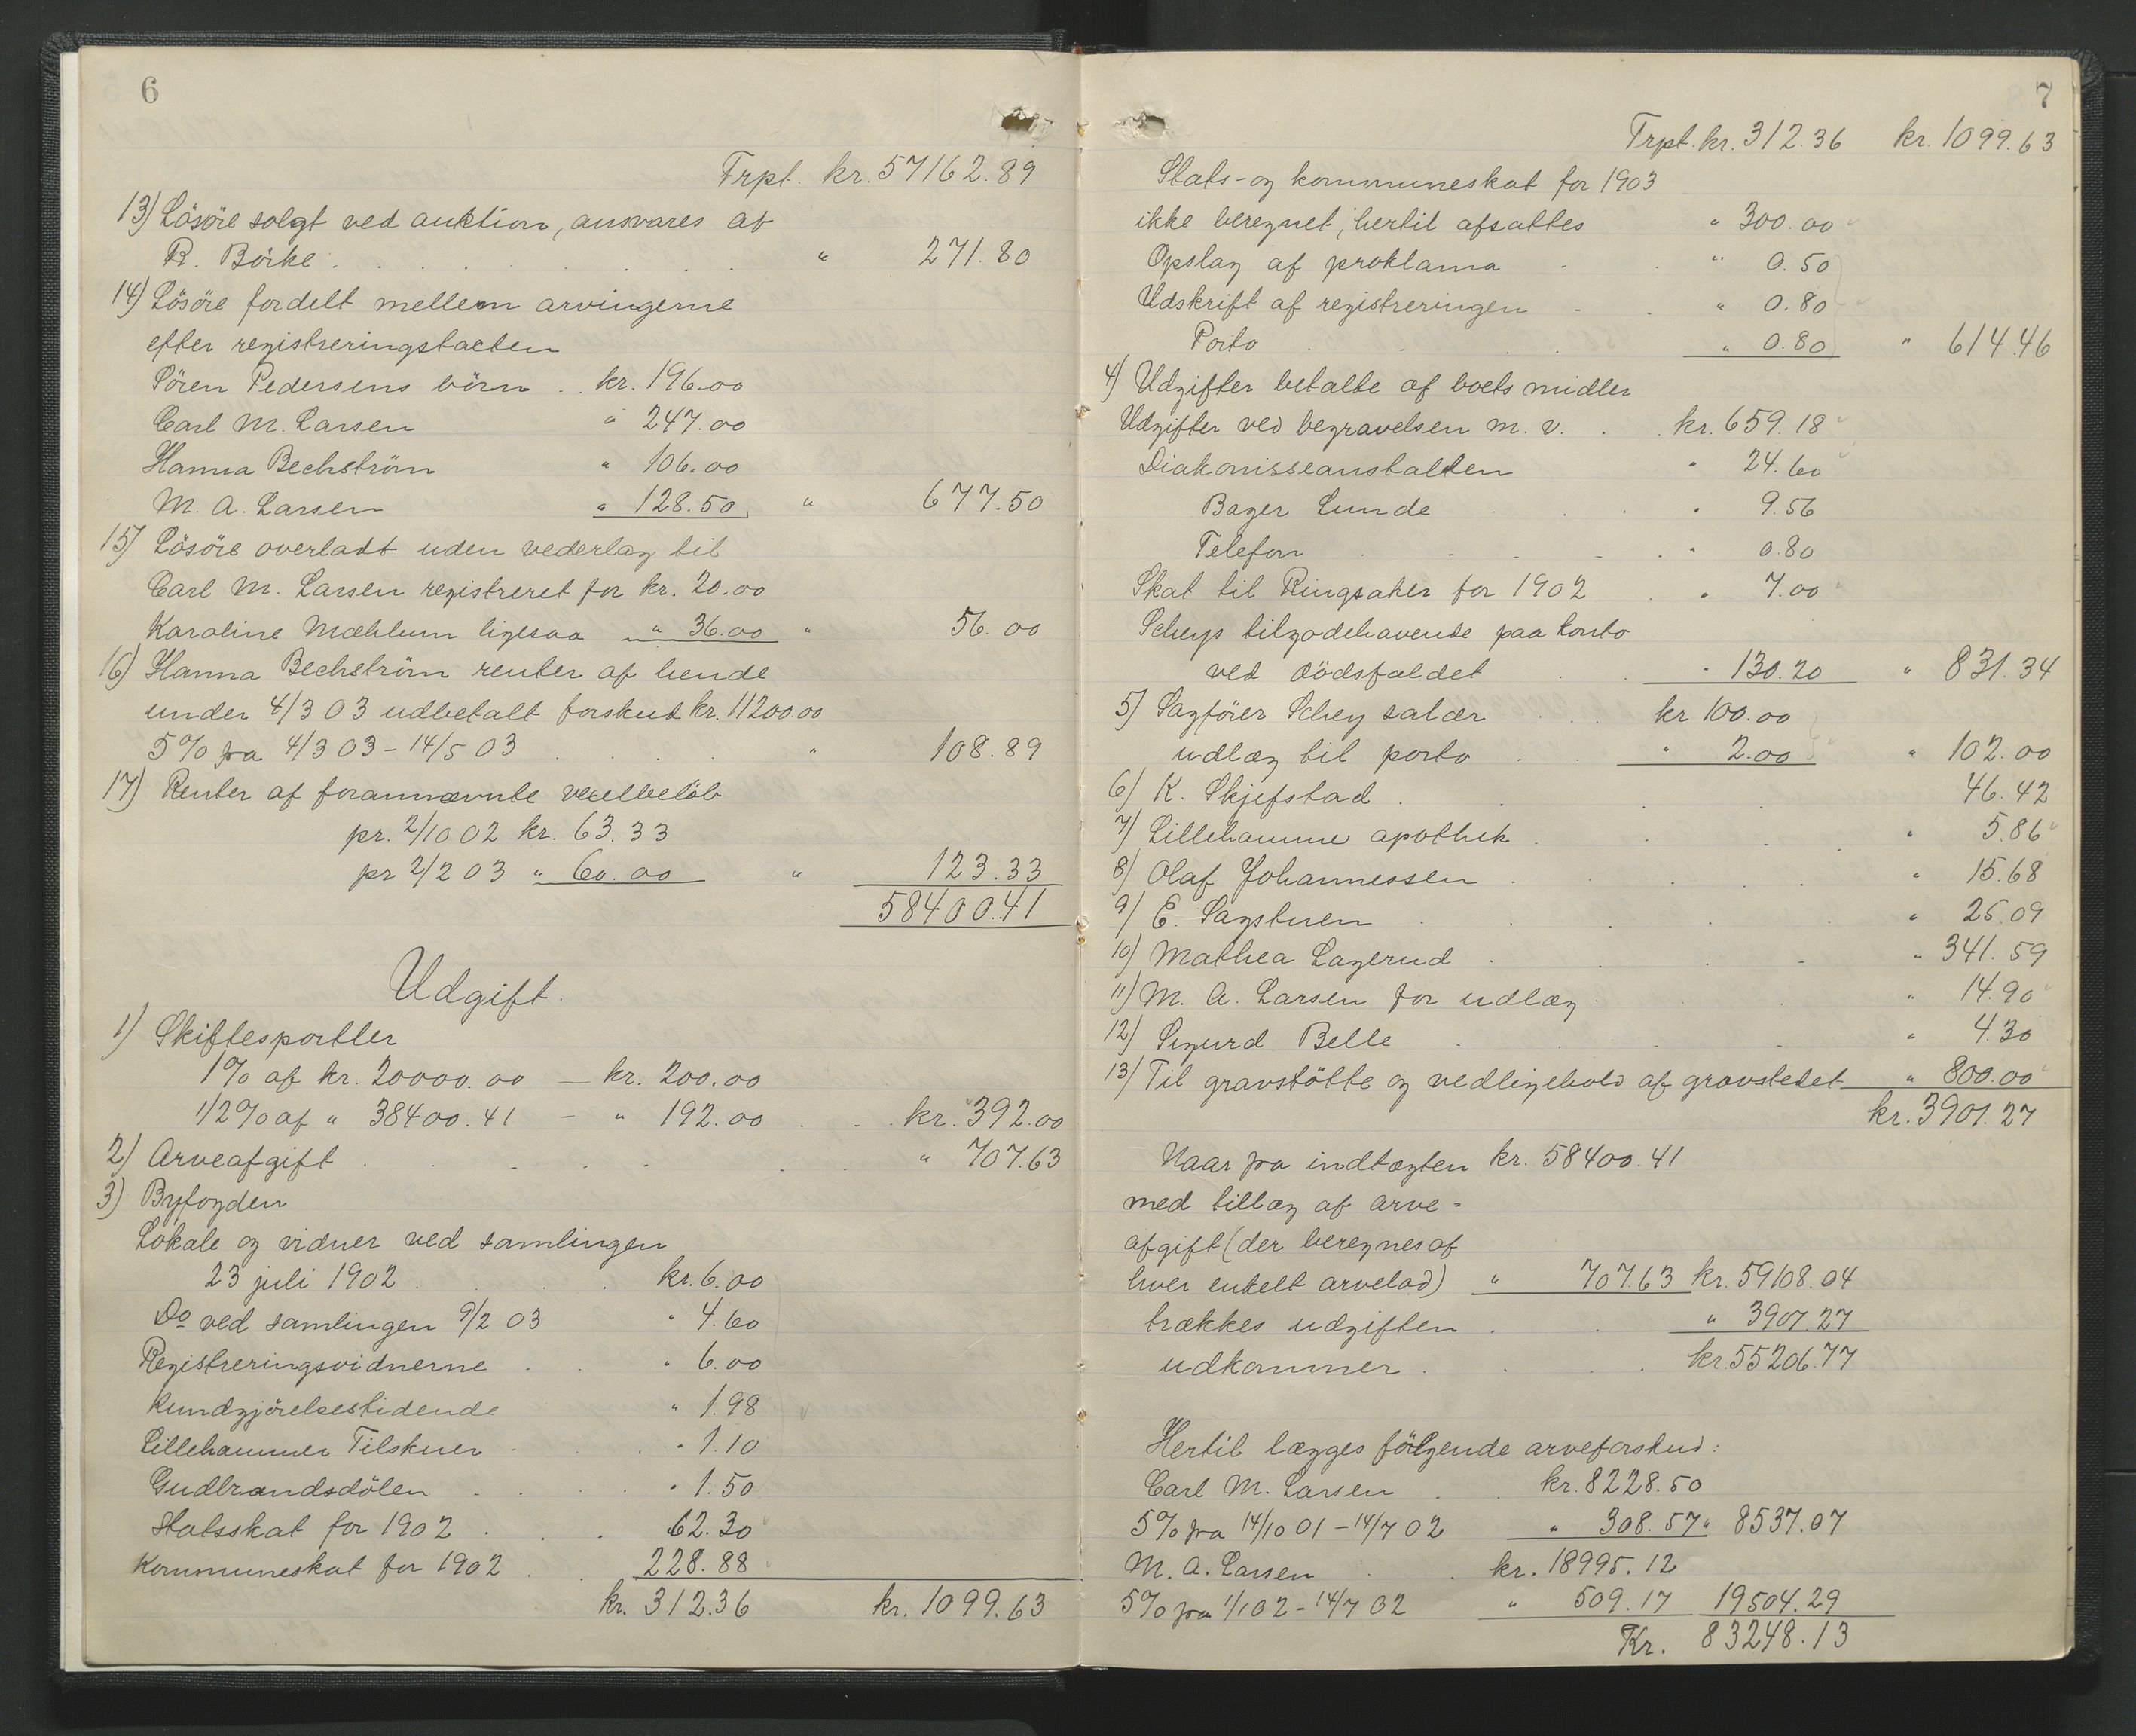 6
Trpt. kr. 57162.89
13) Lösöre solgt ved auktion, ansvares af
R. Börke . . . . . . . " 271.80
14) Lösöre fordelt mellem arvingerne
efter registreringstaxten
Sören Pedersens börn . . kr. 196.00
Carl M. Larsen " 247.00
Hanna Bechström " 106.00
M. A. Larsen " 128.50 " 677.50
15) Lösöre overladt uden vederlag til
Carl M. Larsen registreret for kr. 20.00
Karoline Mæhlum ligesaa " 36.00 " 56.00
16) Hanna Bechström renter af hende
under 4/3 03 udbetalt forskud kr. 11200.00
5% fra 4/3 03 - 14/5 03 . . . . " 108.89
17) Renter af forannævnte vexelbelöb
pr. 2/10 02 kr. 63.33
pr 2/2 03 " 60.00 " 123.33
58400.41
Udgift.
1) Skiftesportler
1% af kr. 20000.00 — kr. 200.00
1/2% af " 38400.41 - " 192.00 . . kr. 392.00
2) Arveafgift . . . . . . " 707.63
3) Byfogden
Lokale og vidner ved samlingen
23 juli 1902 . . kr. 6.00
Do ved samlingen 9/2 03 " 4.60
Registreringsvidnerne . . " 6.00
Kundgjörelsestidende " 1.98
Lillehammer Tilskuer . . " 1.10
Gudbrandsdölen . . . . " 1.50
Statsskat for 1902 . . . 62.30
Kommuneskat for 1902 . . 228.88
kr. 312.36 kr. 1099.63
7
Trpt. kr. 312.36 kr. 1099.63
Stats- og kommuneskat for 1903
ikke beregnet, hertil afsattes " 300.00
Opslag af proklama . . " 0.50
Udskrift af registreringen . . " 0.80
Porto . . " 0.80 " 614.46
4) Udgifter betalte af boets midler
Udgifter ved begravelsen m. v. . . kr. 659.18
Diakonisseanstalten " 24.60
Bager Lunde . . . " 9.56
Telefon . . . . " 0.80
Skat til Ringsaker for 1902 . " 7.00
Scheys tilgodehavende paa konto
ved dödsfaldet . . " 130.20 " 831.34
5) Sagförer Schey salær . . . kr 100.00
udlæg til porto . . " 2.00 " 102.00
6) K. Skjefstad . . . . 46.42
7) Lillehammer apothek . . . . " 5.86
8) Olaf Johannessen . . . . . " 15.68
9) E. Sagstuen . . . . . " 25.09
10) Mathea Lagerud . . . . " 341.59
11) M. A. Larsen for udlæg . . . " 14.90
12) Sigurd Belle . . . . " 4.30
13) Til gravstötte og vedligehold af gravstedet " 800.00
kr. 3901.27
Naar fra indtægten kr. 58400.41
med tillæg af arve-
afgift (der beregnes af
hver enkelt arvelod) " 707.63 kr. 59108.04
trækkes udgiften . . " 3901.27
udkommer . . . kr. 55206.77
Hertil lægges fölgende arveforskud:
Carl M. Larsen . . kr. 8228.50
5% fra 14/10 01 - 14/7 02 " 308.57 " 8537.07
M. A. Larsen . . kr. 18995.12
5% fra 1/1 02 - 14/7 02 " 509.17 19504.29
Kr. 83248.13